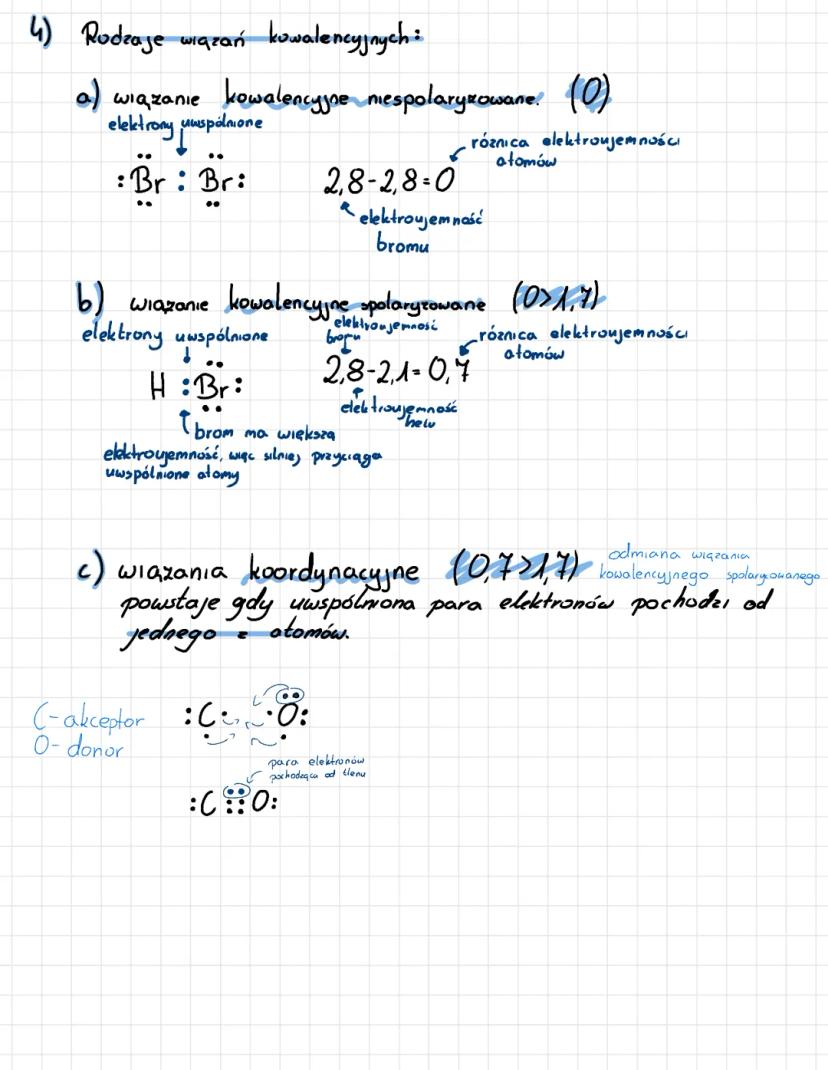 4) Rodzaje wiązań kowalencyjnych:
a) wiązanie kowalencyjne niespolaryzowane. (0)
elektrony uwspólnione
różnica elektroujemności
atomów
:Br : Br:
2,8-2,8=0
elektroujemność
bromu
b) wiązanie kowalencyjne spolaryzowane (0>1,7)
elektrony uwspólnione
elektroujemność
bromu
różnica elektroujemności
atomów
H :Br:
2,8-2,1=0,7
elektroujemność
helu
brom ma większą
elektroujemność, więc silniej przyciąga
uwspólnione atomy
c) wiązania koordynacyjne (0,7>1,7)
odmiana wiązania
kowalencyjnego spolaryzowanego
powstaje gdy uwspólniona para elektronów pochodzi od
jednego z atomów.
C-akceptor
O-donor
:C: ·O:
para elektronów
pochodząca od tlenu
:C :: O: